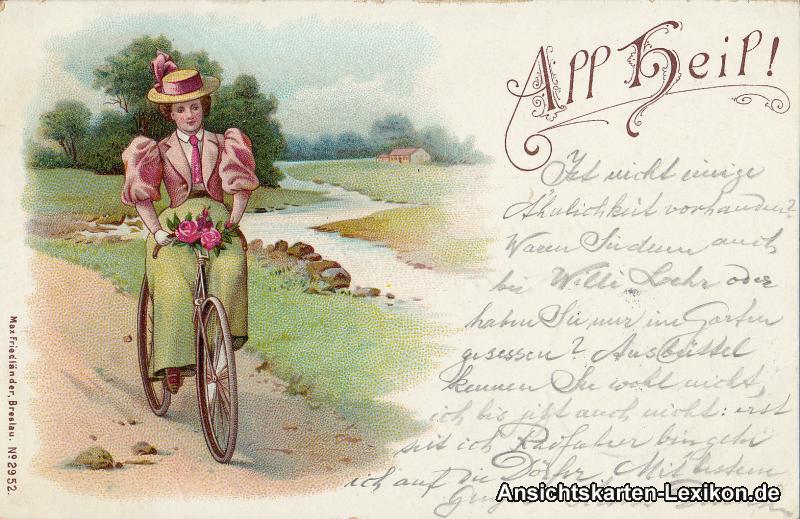 All Heil!
Ist nicht einige
Ähnlichkeit vorhanden?
Waren Sie denn auch
bei Willi Lochr oder
haben Sie nur im Garten
gesessen? Ausbüttel
kennen Sie wohl nicht,
ich bis jetzt auch nicht: erst
seit ich Radfahrer bin gehe
ich auf die Dörfer. Mit bestem
Gruß
Max Friedländer, Breslau. No 2952.
Ansichtskarten-Lexikon.de